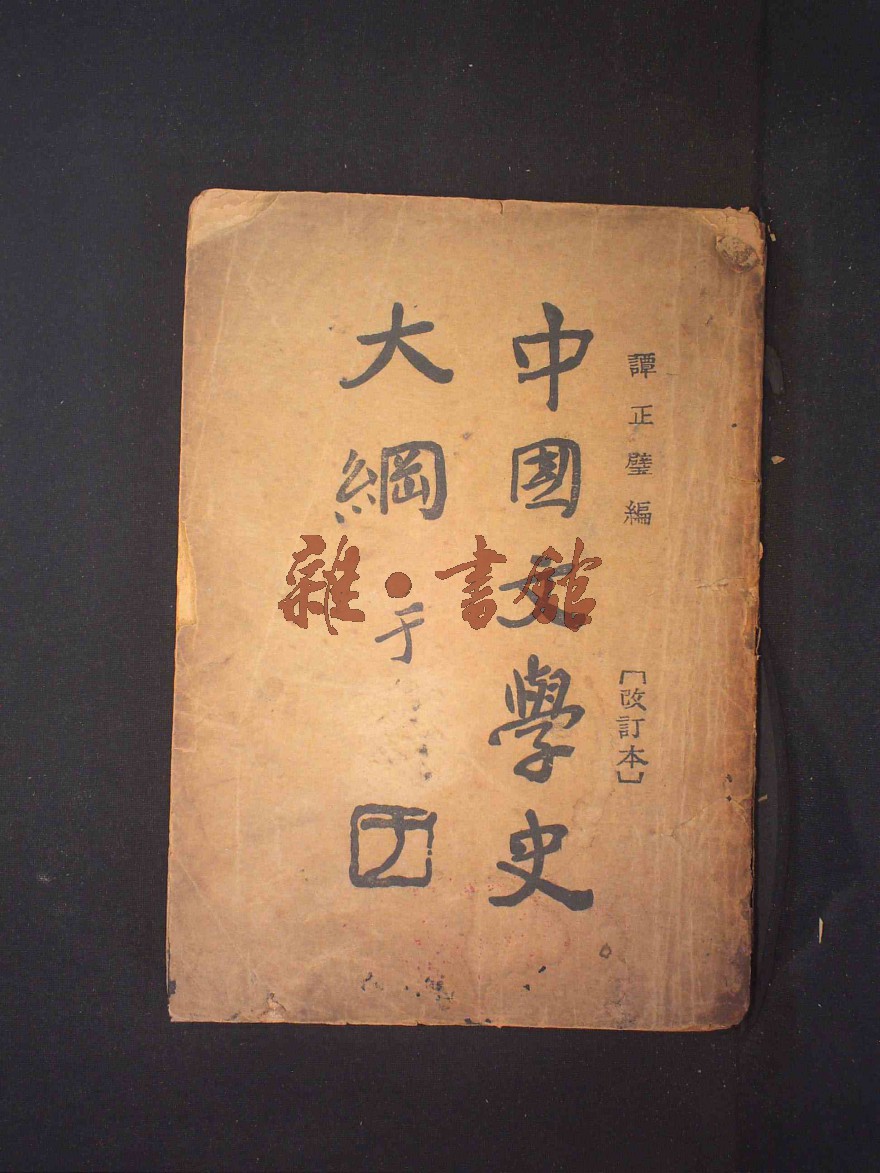 譚正璧編
［改訂本］
中國文學史
大綱
于
雜·書館